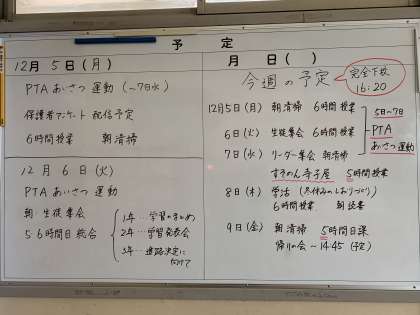 予定
12月 5日(月)
PTA あいさつ 運動 (～7日水)
保護者アンケート 配信予定
6時間 授業 朝清掃
12月 6日(火)
PTA あいさつ 運動
朝・生徒集会
5・6時間目 総合
1年…学習のまとめ
2年…学習発表会
3年…進路決定に
向けて
月 日( )
今週の予定
完全下校
16:20
12月5日(月) 朝清掃 6時間授業
6日(火) 生徒集会 6時間授業
7日(水) リーダー集会 朝清掃
すその寺子屋 5時間授業
5日～7日
PTA
あいさつ運動
8日(木) 学活 (冬休みのしおりづくり)
6時間授業 朝読書
9日(金) 朝清掃 5時間日課
帰りの会～14:45 (予定)